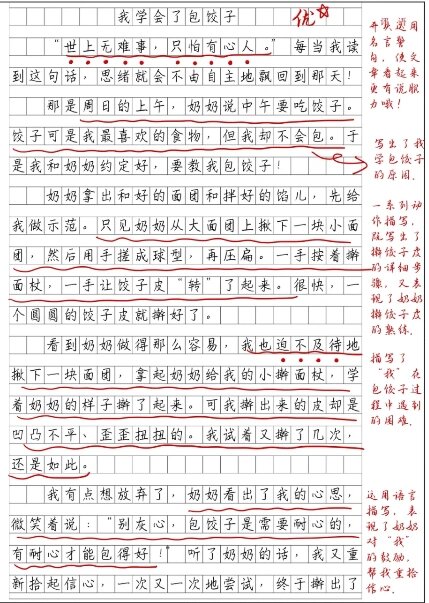 我学会了包饺子
优
“世上无难事，只怕有心人。”每当我读
到这句话，思绪就会不由自主地飘回到那天！
那是周日的上午，奶奶说中午要吃饺子。
饺子可是我最喜欢的食物，但我却不会包。于
是我和奶奶约定好，要教我包饺子！
奶奶拿出和好的面团和拌好的馅儿，先给
我做示范。只见奶奶从大面团上揪下一块小面
团，然后用手搓成球型，再压扁。一手按着擀
面杖，一手让饺子皮“转”了起来。很快，一
个圆圆的饺子皮就擀好了。
看到奶奶做得那么容易，我也迫不及待地
揪下一块面团，拿起奶奶给我的小擀面杖，学
着奶奶的样子擀了起来。可我擀出来的皮却是
凹凸不平、歪歪扭扭的。我试着又擀了几次，
还是如此。
我有点想放弃了，奶奶看出了我的心思，
微笑着说：“别灰心，包饺子是需要耐心的，
有耐心才能包得好！”听了奶奶的话，我又重
新拾起信心，一次又一次地尝试，终于擀出了
开头运用
名言警
句，使文
章看起来
更有说服
力哦！
写出了我
学包饺子
的原因。
一系列动
作描写，
既写出了
擀饺子皮
的详细步
骤，又表
现了奶奶
擀饺子皮
的熟练。
描写了
“我”在
包饺子过
程中遇到
的困难。
运用语言
描写，表
现了奶奶
对“我”
的鼓励，
帮我重拾
信心。